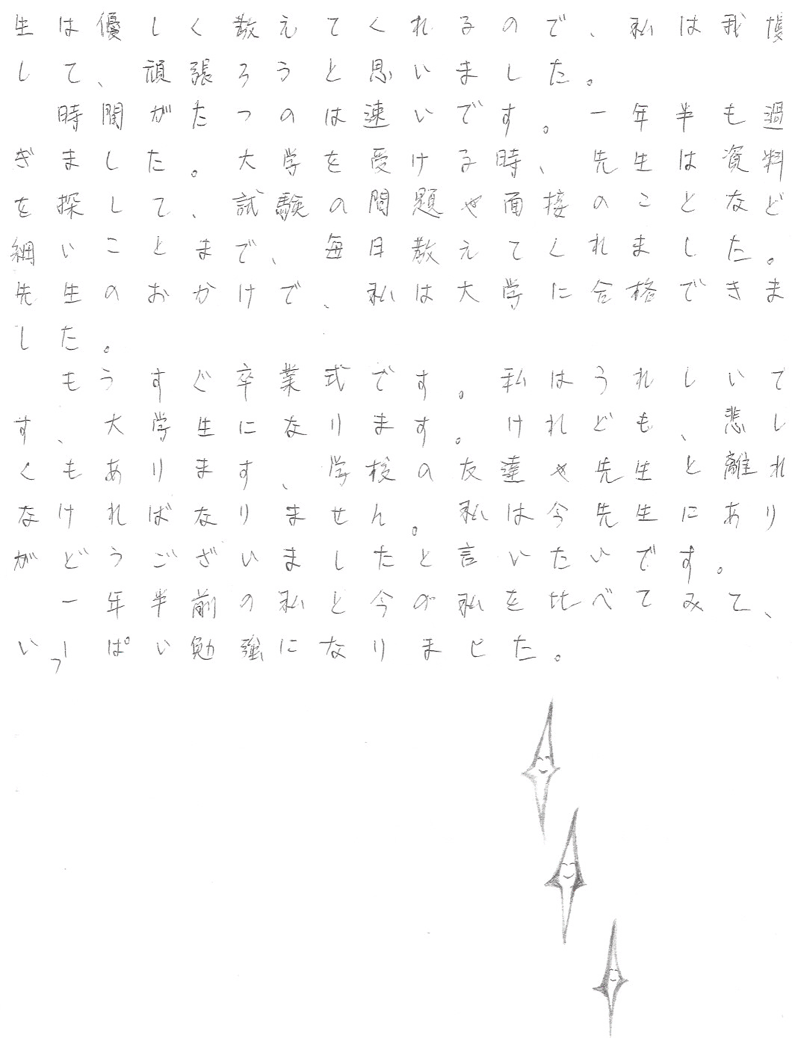 生は優しく教えてくれるので、私は我慢
して、頑張ろうと思いました。
時間がたつのは速いです。一年半も過
ぎました。大学を受ける時、先生は資料
を探して、試験の問題や面接のことなど
細いことまで、毎日教えてくれました。
先生のおかけで、私は大学に合格できま
した。
もうすぐ卒業式です。私はうれしいで
す、大学生になります。けれども、悲し
くもあります、学校の友達や先生と離れ
なければなりません。私は今先生にあり
がどうございましたと言いたいです。
一年半前の私と今の私を比べてみて、
いっぱい勉強になりました。